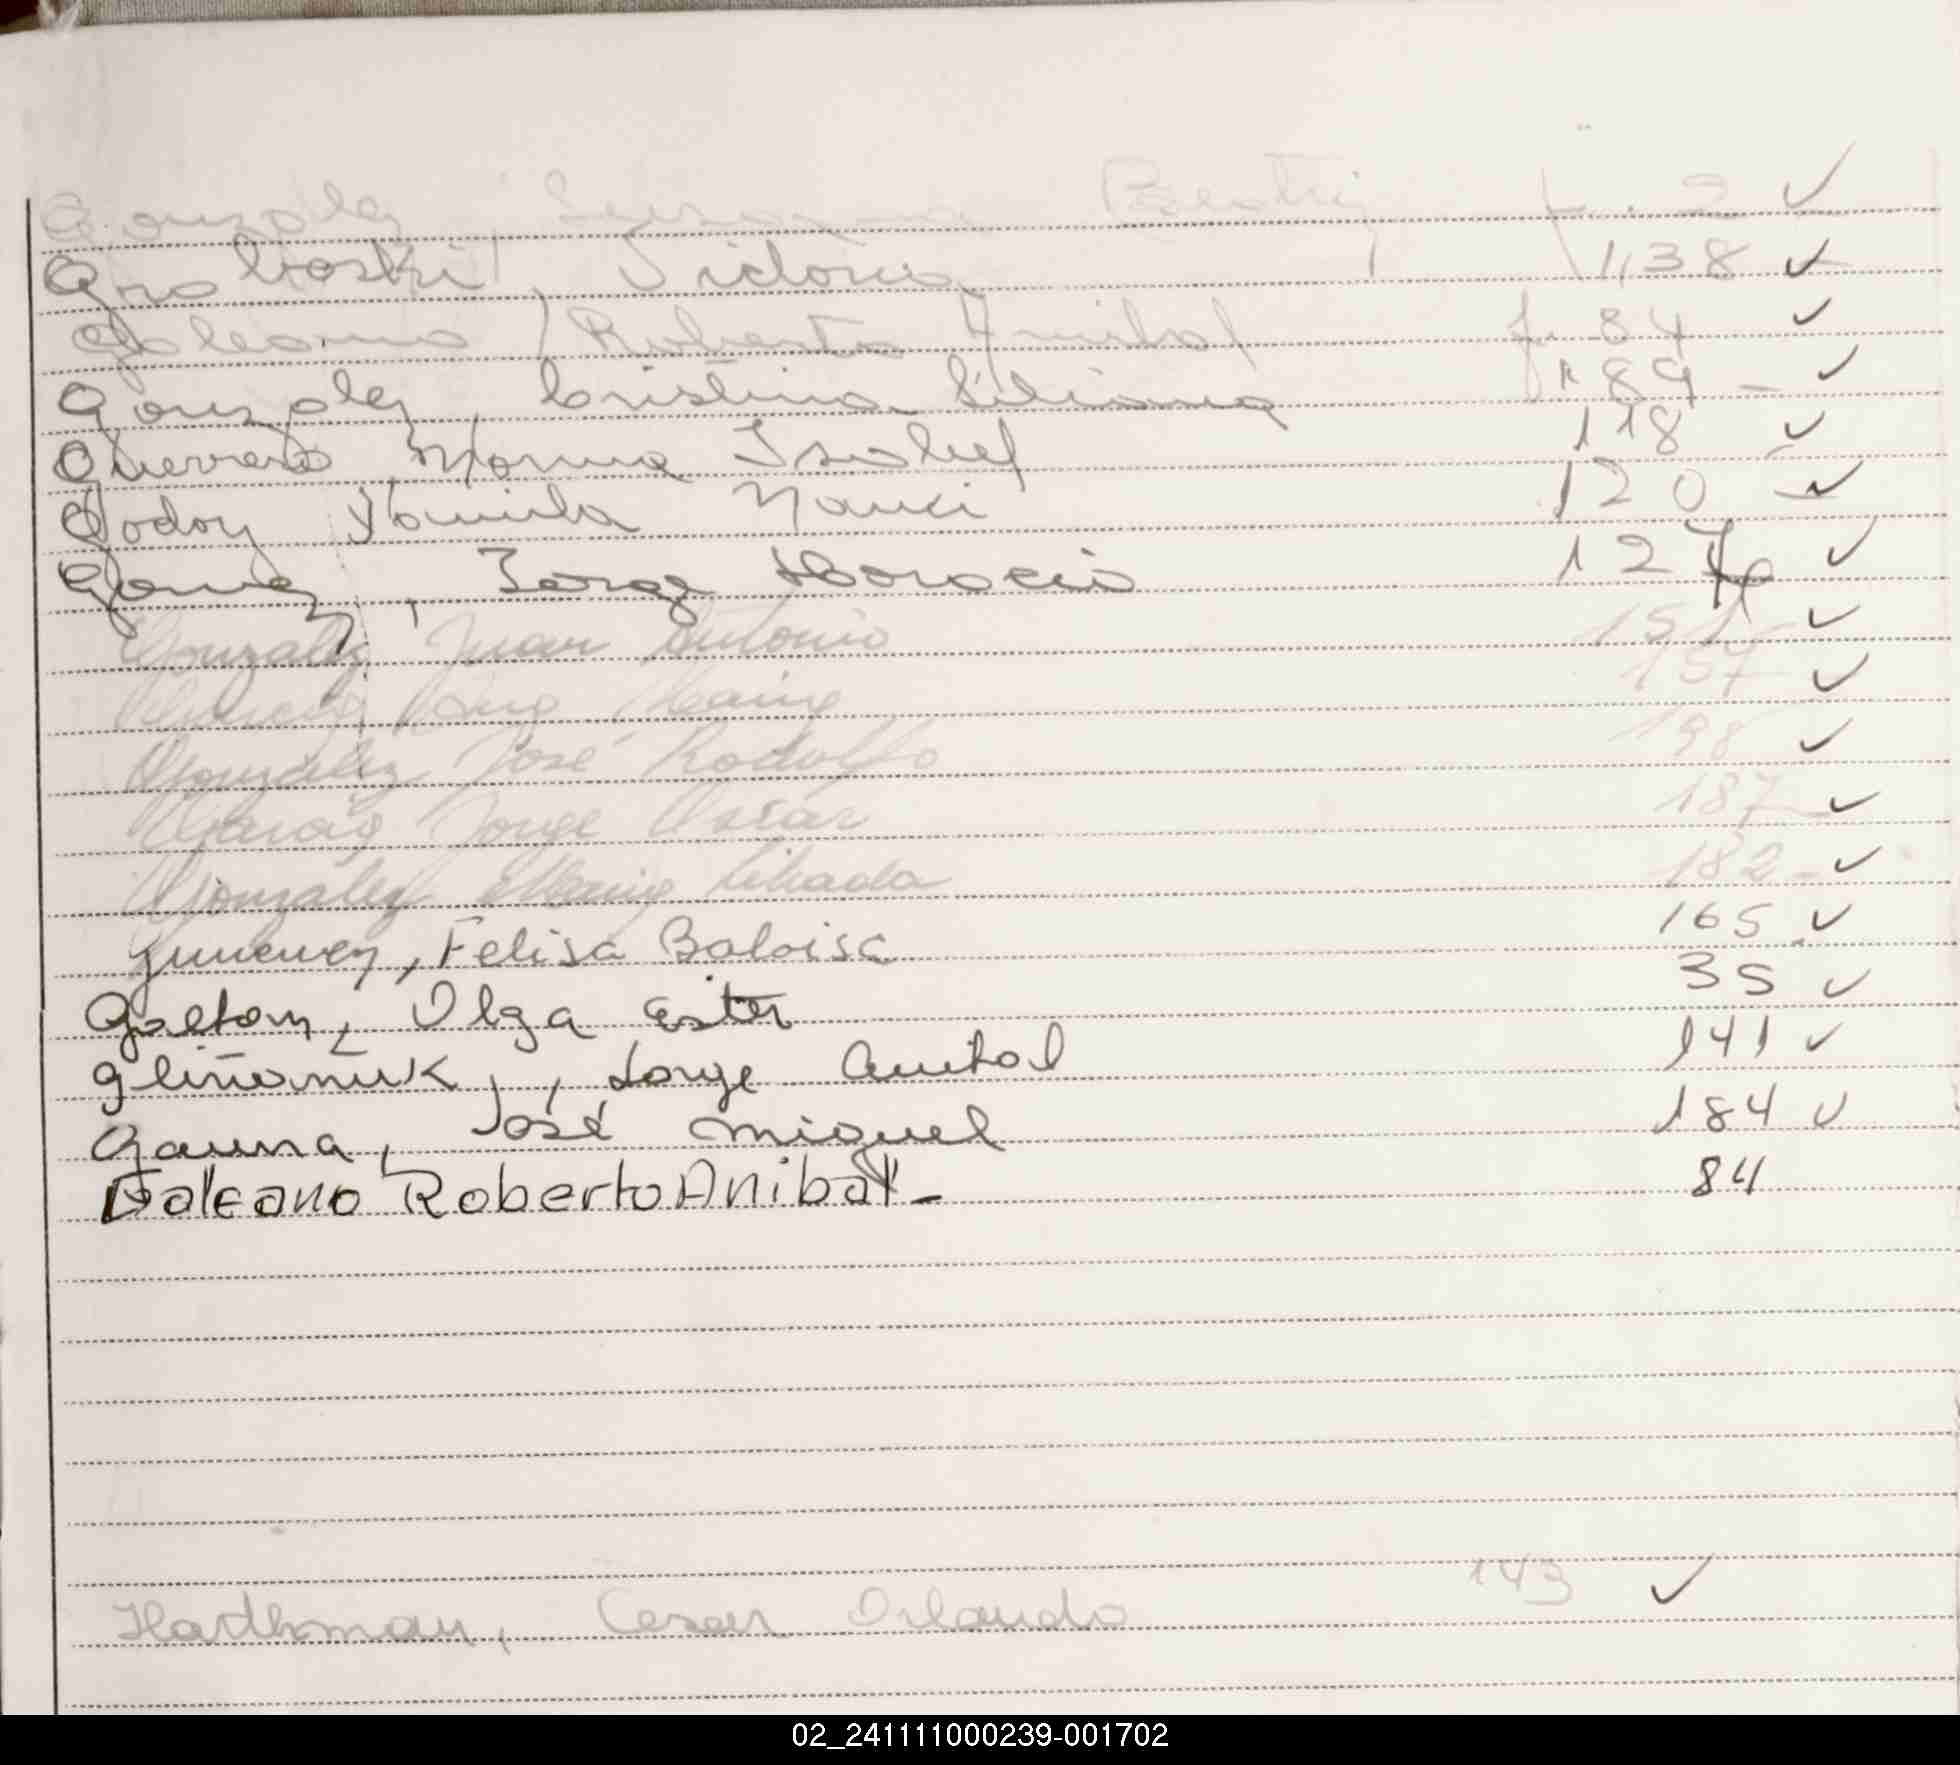 Gonzalez, Susana Beatriz f. 2 ✓
Graboski, Sidonia 138 ✓
Galeano, Roberto Anibal f. 84 ✓
Gonzalez, Cristina Liliana " 89 - ✓
Guerrero Norma Isabel 118 ✓
Godoy Yamila Nanci 120 - ✓
Gomez, Jorge Horacio 127 ✓
Gonzalez Juan Antonio 151 ✓
157 ✓
González José Rodolfo 198 ✓
Jorge Oscar 187 ✓
González María 182 - ✓
Jimenez, Felisa Baloisa 165 ✓
Gaetan, Olga Ester 35 ✓
Gliñaniuk, Jorge Anibal 141 ✓
Gauna, José Miguel 184 ✓
Galeano Roberto Anibal - 84
Harthman, Cesar Orlando 143 ✓
02_241111000239-001702